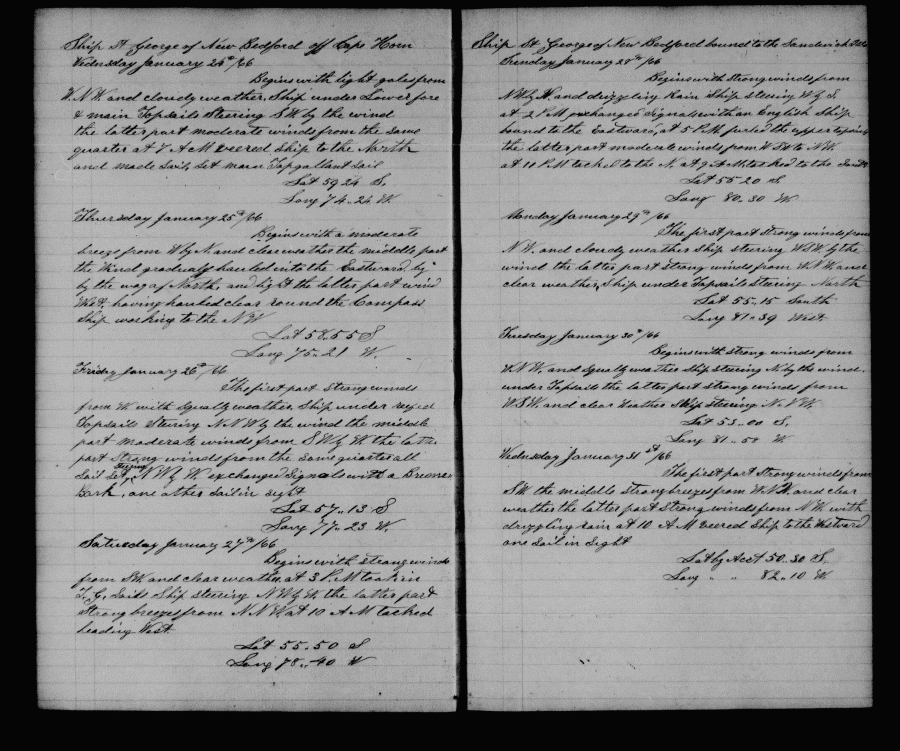 Ship St George of New Bedford off Cape Horn
Wednesday January 24th/66
Begins with light gales from
W.N.W. and cloudy weather. Ship under Lower fore
& main Topsails Steering S.W. by the wind
the latter part moderate winds from the same
quarter at 7 A M veered Ship to the North
and made sail, set main Topgallant sail
Lat 59 24 S.
Long 74.. 24 W
Thursday January 25th/66
Begins with a moderate
breeze from W by N. and clear weather the middle part
the Wind gradualy hauled into the Eastward by
by the way of North, and light the latter part wind
West, having hauled clear round the Compass
Ship working to the N W
Lat 58.55 S
Long 75.. 21 W.
Friday January 26th/66
The first part Strong winds
from W with Squally weather, Ship under reefed
Topsails Steering N N W by the wind the middle
part moderate winds from S W by W the latter
part Strong winds from the same quarter all
Sail Set, steering N W by W. exchanged Signals with a Bremen
Bark, one other Sail in sight
Lat 57.. 13 S
Long 77.. 23 W.
Saturday January 27th/66
Begins with strong winds
from S.W and clear weather, at 3 P.M took in
T, G, Sails Ship steering N W by W. the latter part
Strong breezes from N. N W, at 10 A M tacked
heading West.
Lat 55.. 50 S
Long 78.. 40 W
Ship St George of New Bedford bound to the Sandwich Isles
Sunday January 28th/66
Begins with strong winds from
N W by W and drizzling Rain Ship steering W by S
at 2 P M exchanged Signals with an English Ship
bound to the Eastward, at 5 P.M. furled the upper topsails
the latter part moderate winds from W S W to N W.
at 11 P M tacked to the N. at 9 A M, tacked to the South
Lat 55 20 S
Long 80.. 30 W
Monday January 29th/66
The first part strong winds from
N W. and cloudy weather Ship steering W.S.W by the
wind the latter part strong winds from W N W. and
clear weather, Ship under Topsails Steering North
Lat 55.. 15 South
Long 81.. 39 West
Tuesday January 30th/66
Begins with strong winds from
W N W. and Squally weather Ship steering N. by the wind.
under Topsails the latter part strong winds from
W S W. and clear weather Ship Steering N. N W.
Lat 53.. 00 S,
Long 81.. 52 W
Wednesday January 31st/66
The first part Strong winds from
S W. the middle strong breezes from W. N. W. and clear
weather the latter part Strong winds from N W. with
drizzling rain at 10 A M veered Ship to the Westward
one Sail in Sight
Lat by Acct 50.. 30 S.
Long " " 82.. 10 W